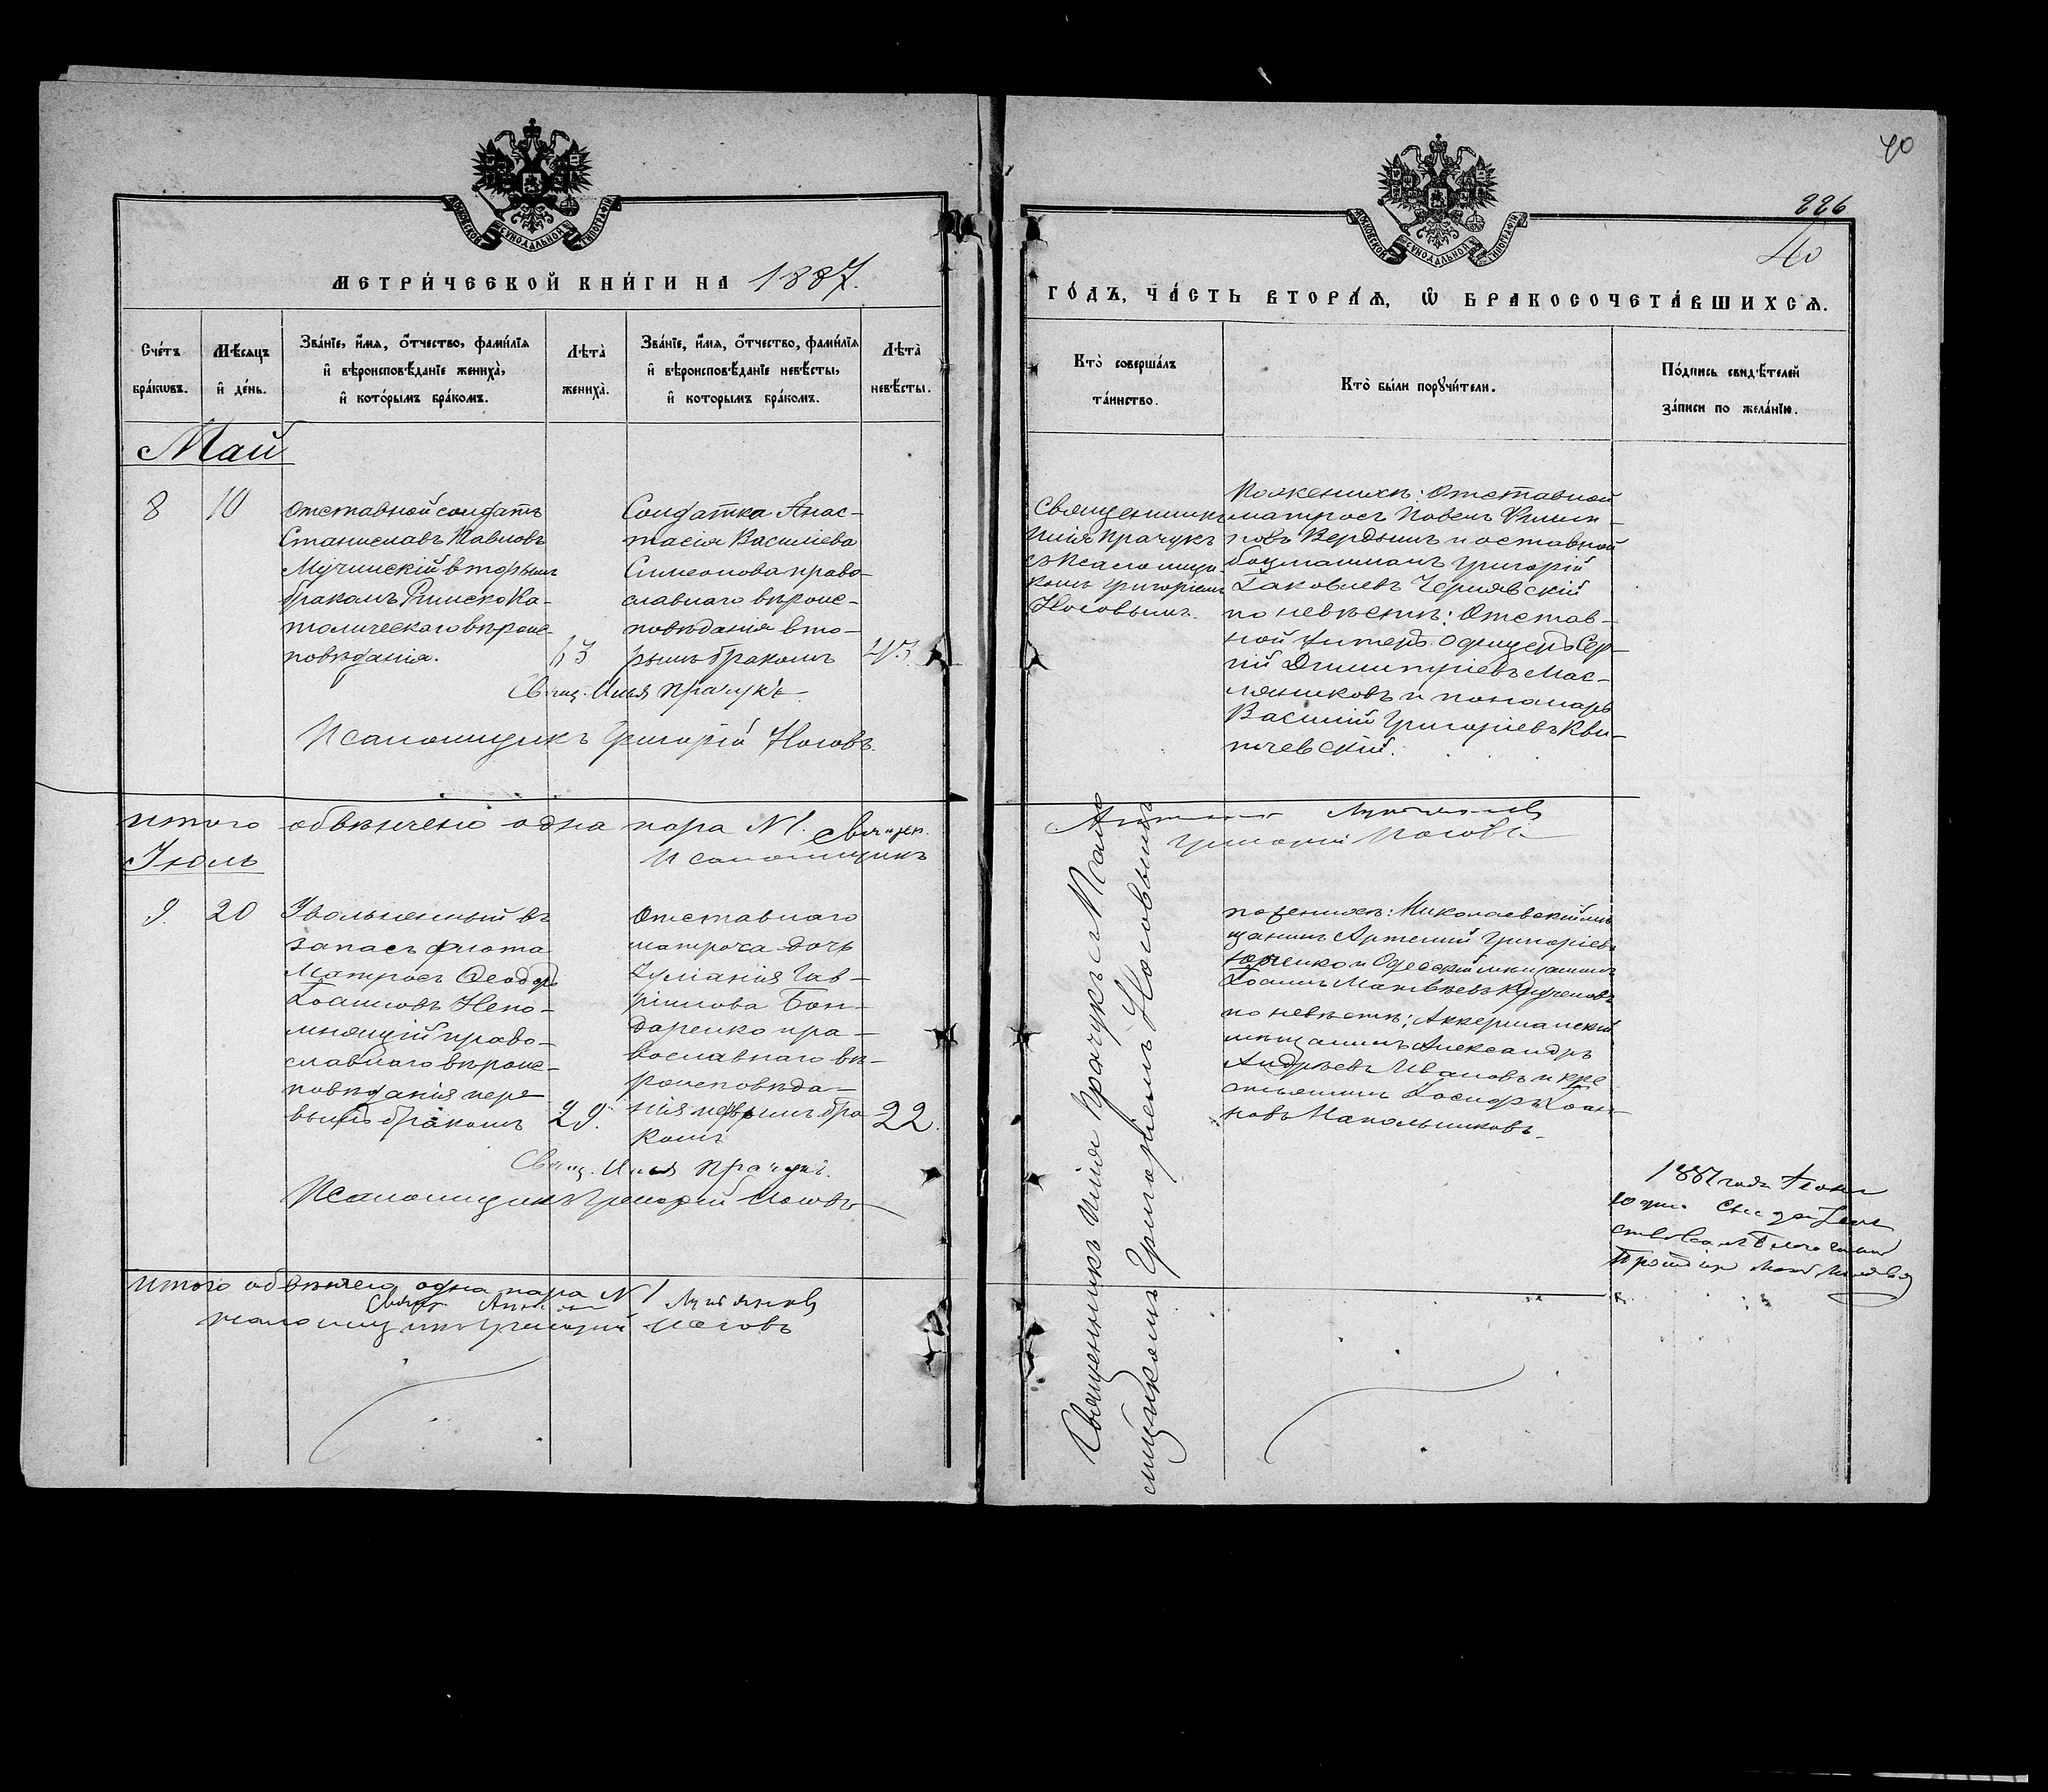 МОСКОВСКОЙ СУНОДАЛЬНОЙ ТИПОГРАФІИ
МЕТРИ́ЧЕСКОЙ КНИ́ГИ НА 1887.
Сче́тъ бра́кωвъ.
Мѣ́сяцъ и҆ де́нь.
Зва́нїе, и҆́мя, ѻ҆́тчество, фами́лїя и҆ вѣроисповѣ́данїе жениха̀, и҆ кото́рымъ бра́комъ.
Лѣ́та̀ жениха̀.
Зва́нїе, и҆́мя, ѻ҆́тчество, фами́лїя и҆ вѣроисповѣ́данїе невѣ́сты, и҆ которымъ бра́комъ.
Лѣ́та̀ невѣ́сты.
Май
8
10
Отставной солдатъ
Станиславъ Павловъ
Мучинскій вторымъ
бракомъ Римско Ка-
толическаго вѣроис-
повѣданія.
63
Солдатка Анас-
тасія Василіева
Симеонова право-
славнаго вѣроис-
повѣданія вто-
рымъ бракомъ
43
Свящ. Илья Прачукъ
Псаломщикъ Григорій Носовъ.
итого обвѣнчено одна пара N 1. Священ.
Псаломщикъ
Іюль
9.
20
Увольненный въ
запасъ флота
Матросъ Ѳеодоръ
Іоанновъ Непо-
мнящій право-
славнаго вѣроис-
повѣданія пер
вымъ бракомъ
29.
Отставнаго
матроса дочь
Іуліанія Гав-
ріилова Бон-
даренко пра-
вославнаго вѣ-
роисповѣда-
нія первымъ бра
комъ
22.
Свящ. Илья Прачукъ.
Псаломщикъ Григорій Носовъ
Итого обвѣнчено одна пара N 1
Псаломщикъ Григорій Носовъ
40
226
40
МОСКОВСКОЙ СУНОДАЛЬНОЙ ТИПОГРАФІИ
ГО́ДЪ, ЧА́СТЬ ВТОРА́Я, Ѽ БРАКОСОЧЕТА́ВШИХСЯ.
Кто̀ соверша́лъ та́инство.
Кто̀ бы́ли порꙋчи́тели.
По́дпись свидѣ́телей за́писи по жела́нїю.
Священникъ
Илія Прачукъ
съ Псаломщи-
комъ Григоріемъ
Носовымъ.
По женихѣ: Отставной
матросъ Павелъ Филип-
повъ Вердышъ и оставной
боцманманъ Григорій
Іаковлевъ Чернявскій
по невѣстѣ: Отстав-
ной Унтеръ Офицеръ Сер-
гій Димитріевъ Мас-
лянниковъ и пономарь
Василій Григоріевъ Кви-
тчевскій.
Григорій Носовъ
Священникъ Илія Прачукъ съ Псало
мщикомъ Григоріемъ Носовымъ
по женихѣ: Николаевскій мѣ
щанинъ Артемій Григоріевъ
и Одесскій мѣщанинъ
Іоаннъ Матвѣевъ
по невѣстѣ: Аккерманскій
мѣщанинъ Александръ
Андреевъ Ивановъ и кре
стьянинъ Іосифъ Іоан-
новъ Напольниковъ.
1887 года
10 дня